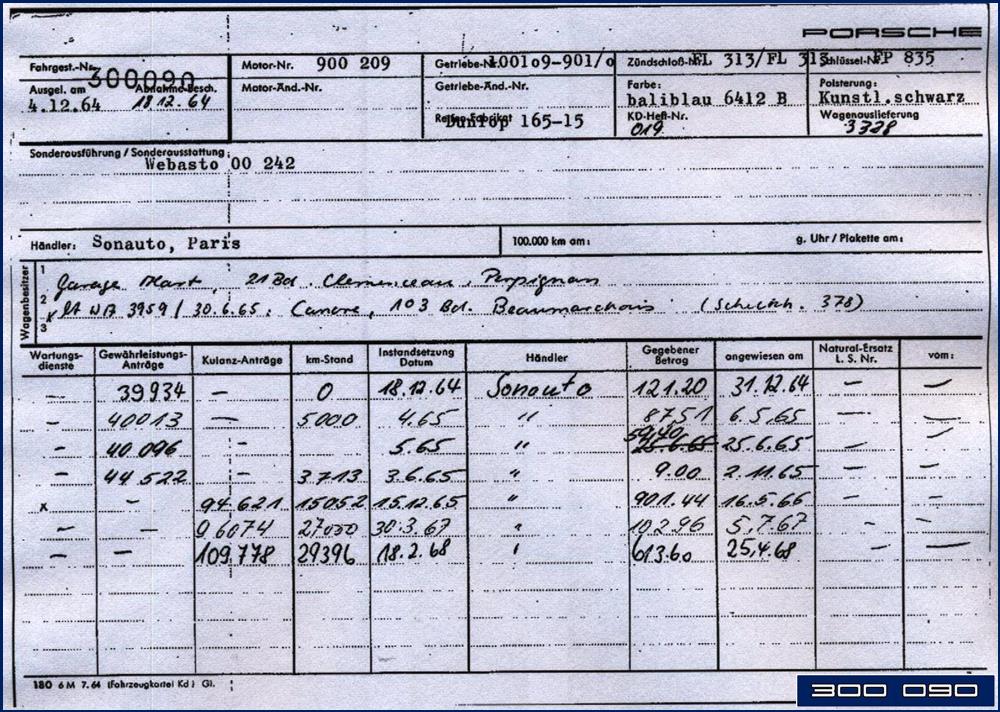 PORSCHE
Fahrgest.-Nr. 300090
Motor-Nr. 900 209
Getriebe-Nr. 100109-901/0
Zündschloß-Nr. FL 313/FL 313
Schlüssel-Nr. FP 835
Ausgel. am 4.12.64
Abnahme-Besch. 18.12.64
Motor-Änd.-Nr.
Getriebe-Änd.-Nr.
Farbe: baliblau 6412 B
Polsterung: Kunstl.schwarz
Reifen-Fabrikat Dunlop 165-15
KD-Heft-Nr. 019
Wagenauslieferung 3328
Sonderausführung / Sonderausstattung: Webasto 00 242
Händler: Sonauto, Paris
100.000 km am:
g. Uhr / Plakette am:
Wagenbesitzer
1 Garage 21 Bd. Clemenceau, Perpignan
2 lt WA 3959 / 30.6.65: 103 Bd. Beaumarchais (Scheckh. 378)
3
Wartungsdienste Gewährleistungs-Anträge Kulanz-Anträge km-Stand Instandsetzung Datum Händler Gegebener Betrag angewiesen am Natural-Ersatz L. S. Nr. vom:
— 39934 — 0 18.12.64 Sonauto 121.20 31.12.64 — —
— 40013 — 5000 4.65 " 87.51 6.5.65 — —
— 40 096 - 5.65 " 59,40 25.6.65 25.6.65 — —
— 44 522 - 3713 3.6.65 " 9.00 2.11.65 — —
x - 94 621 15052 15.12.65 " 901.44 16.5.66 — —
— — 96074 27000 30.3.67 " 102.96 5.7.67 - -
— — 109.778 29396 18.2.68 " 613.60 25.4.68 — —
180 6 M 7. 64 (Fahrzeugkartei Kd) Gl.
300 090